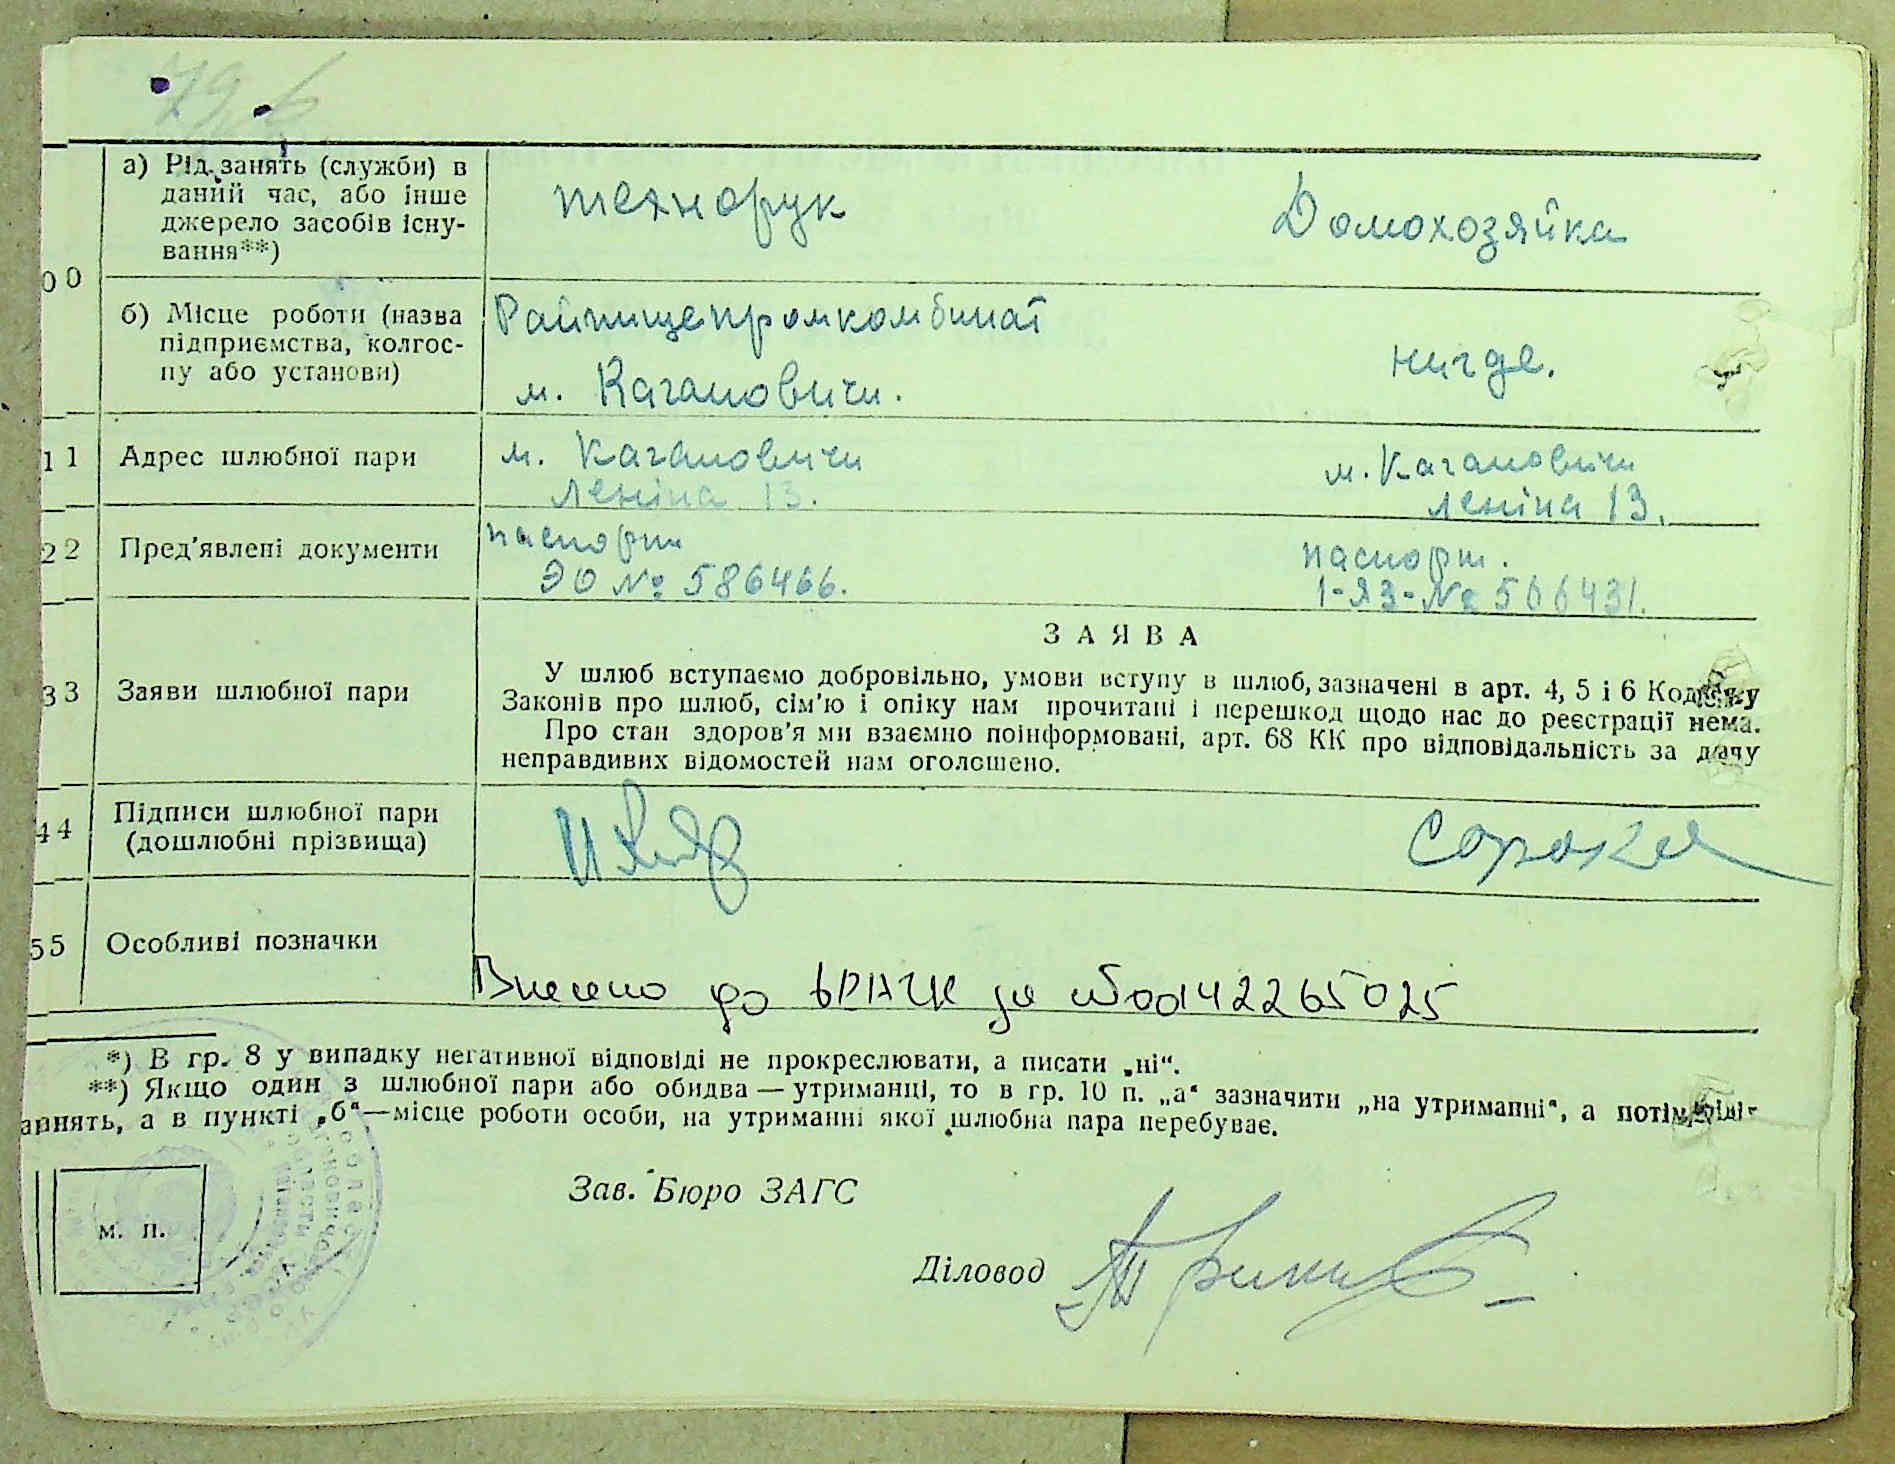 00
а) Рід занять (служби) в
даний час, або інше
джерело засобів існу-
вання**)
технорук
Домохозяйка
б) Місце роботи (назва
підприємства, колгос-
пу або установи)
Райпищепромкомбинат
м. Кагановичи.
нигде.
11
Адрес шлюбної пари
м. Кагановичи
Леніна 13.
м. Кагановичи
Леніна 13.
22
Пред'явлені документи
паспорт
ЭО № 586466.
паспорт.
1-ЯЗ-№ 566431.
33
Заяви шлюбної пари
ЗАЯВА
У шлюб вступаємо добровільно, умови вступу в шлюб, зазначені в арт. 4, 5 і 6 Кодексу
Законів про шлюб, сім'ю і опіку нам прочитані і перешкод щодо нас до реєстрації нема.
Про стан здоров'я ми взаємно поінформовані, арт. 68 КК про відповідальність за дачу
неправдивих відомостей нам оголошено.
44
Підписи шлюбної пари
(дошлюбні прізвища)
Сорока
55
Особливі позначки
Внесено до ЄРАЦС за №00142265025
*) В гр. 8 у випадку негативної відповіді не прокреслювати, а писати „ні“.
**) Якщо один з шлюбної пари або обидва — утриманці, то в гр. 10 п. „а“ зазначити „на утриманні“, а потім рід
анять, а в пункті „б“—місце роботи особи, на утриманні якої шлюбна пара перебуває.
Зав. Бюро ЗАГС
м. п.
Діловод